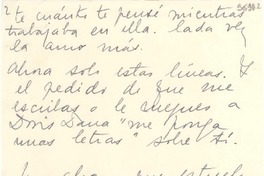 2 te cuánto te pensé mientras
trabajaba en ella. Cada vez
la amo más.
Ahora solo estas líneas. Y
el pedido de que me
escribas o le ruegues a
Doris Dana "me ponga
unas letras" sobre tí.